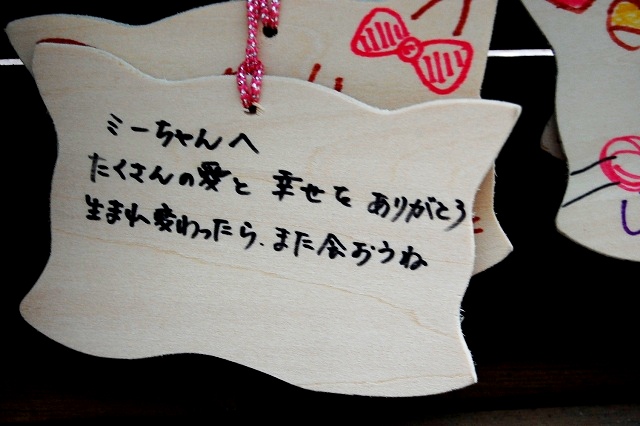 ミーちゃんへ
たくさんの愛と 幸せを ありがとう
生まれ変わったら、また会おうね